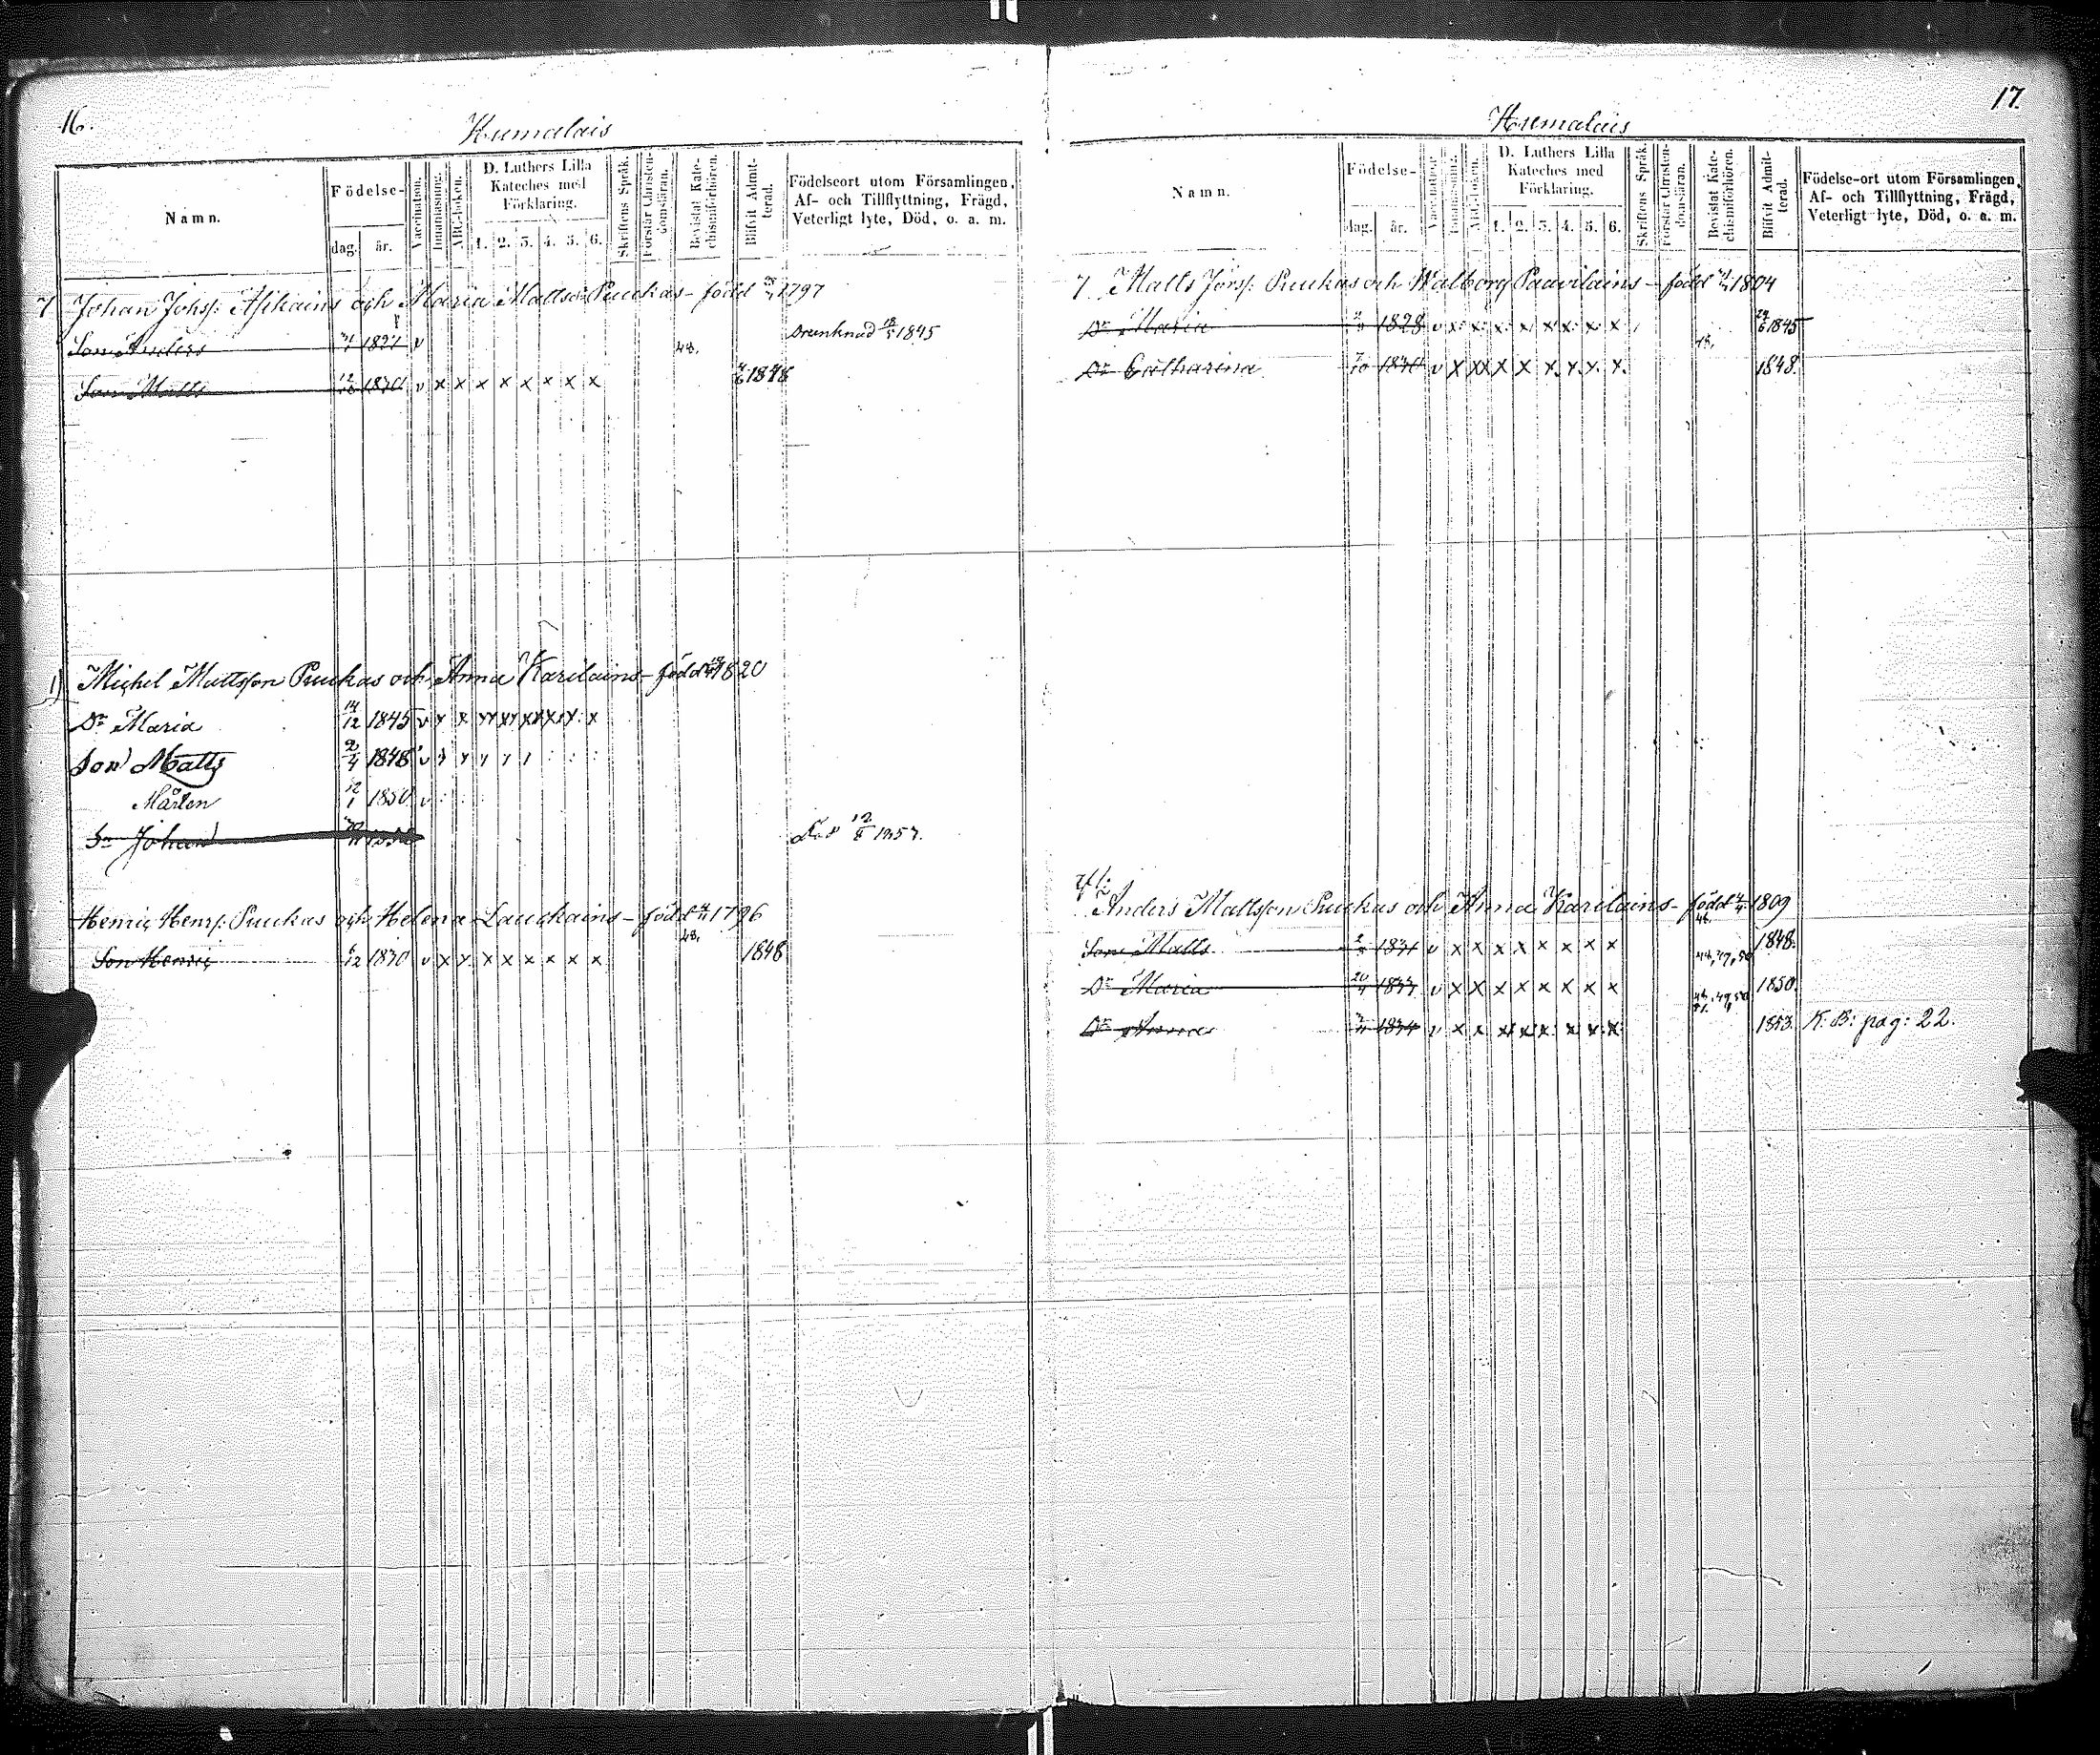 16.
Humalais
Namn.
Födelse-
dag. år.
Vaccination.
Innanläsning.
ABC-boken.
D. Luthers Lilla Kateches med Förklaring.
1. 2. 3. 4. 5. 6.
Skriftens Språk.
Förstår Christendomsläran.
Bevistat Katechismiförhören.
Blifvit Admitterad.
Födelseort utom Församlingen, Af- och Tillflyttning, Frägd, Veterligt lyte, Död, o. a. m.
7 Johan Johss: Asikains och Maria Mattsdr Puukas - född 1797
Son Anders 1827 v 48. Drunknad 1845
Son Matts 1830 v x x x x x x x x 1848
1) Michel Mattsson Puukas och Anna Karilains - född 1820
Dr Maria 14/12 1845 v x x xx xx xx xx x
Son Matts 2/4 1848 v
Mårten 12/1 1850 v
Sn Johan Död 12/8 1857.
Henric Henrs: Puukas och Helena Lauckains - född 1796
Son Henric 6/12 1830 v x x x x x x x x 48. 1848
17.
Humalais
Namn.
Födelse-
dag. år.
Vaccination.
Innanläsning.
ABC-boken.
D. Luthers Lilla Kateches med Förklaring.
1. 2. 3. 4. 5. 6.
Skriftens Språk.
Förstår Christendomsläran.
Bevistat Katechismiförhören.
Blifvit Admitterad.
Födelse-ort utom Församlingen, Af- och Tillflyttning, Frägd, Veterligt lyte, Död, o. a. m.
7. Matts Jörs: Puukas och Walborg Paavilains - född 1804
Dr Maria 1828 v x x x x x x x x 1845
Dr Catharina 1830 v x xx x x x x x x 1848.
Anders Mattsson Puukas och Anna Karilains - född 1809
Son Matts 1831 v x x x x x x x x 1848.
Dr Maria 20/4 1833 v x x x x x x x x 1850.
Dr Anna 1834 v x x x x x x x x 1853. K: B: pag: 22.